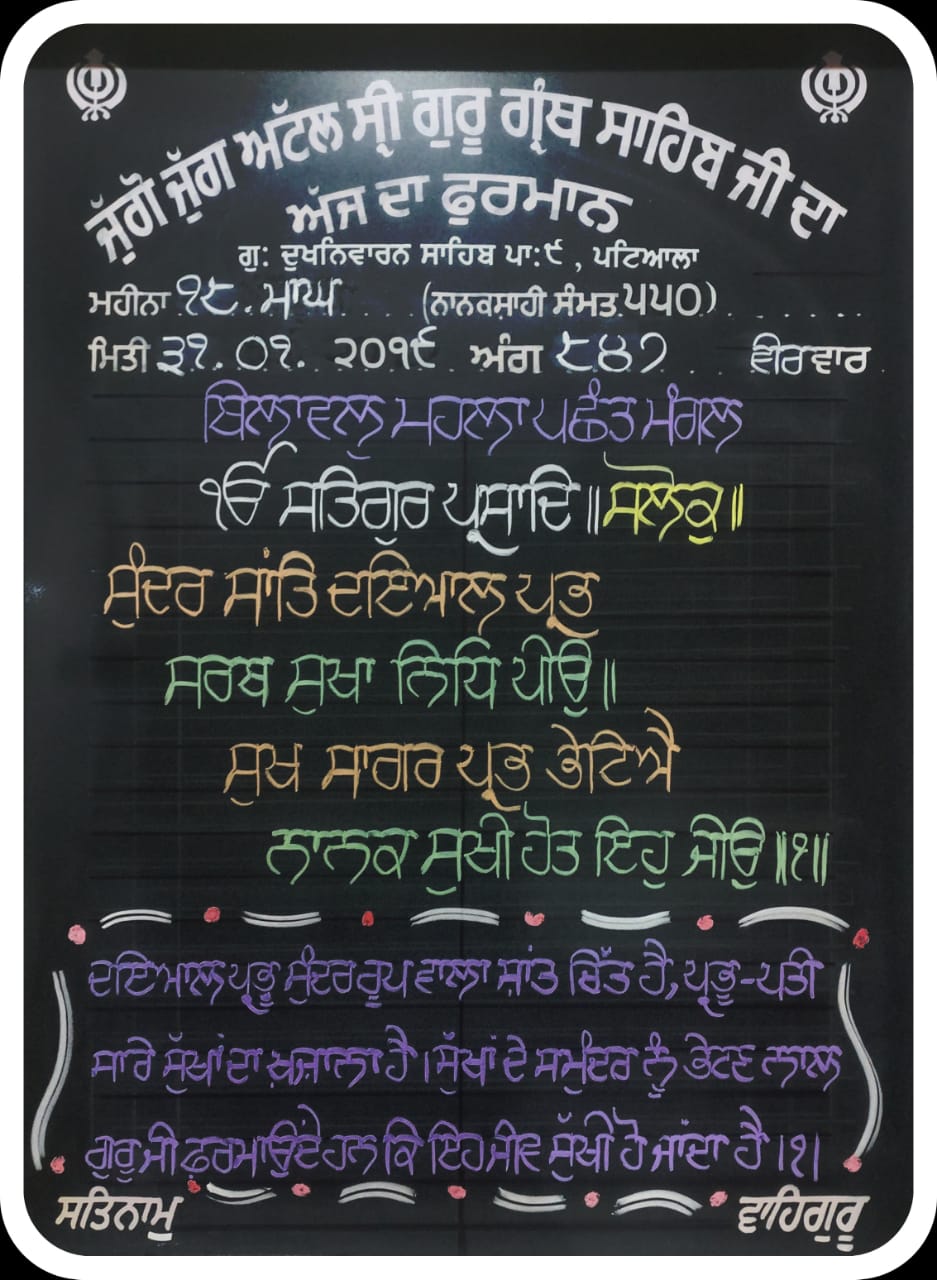 ਜੁੱਗੋ ਜੁੱਗ ਅੱਟਲ ਸ੍ਰੀ ਗੁਰੂ ਗ੍ਰੰਥ ਸਾਹਿਬ ਜੀ ਦਾ
ਅੱਜ ਦਾ ਫੁਰਮਾਨ
ਗੁ: ਦੁਖਨਿਵਾਰਨ ਸਾਹਿਬ ਪਾ:੯ , ਪਟਿਆਲਾ
ਮਹੀਨਾ ੧੮ ਮਾਘ (ਨਾਨਕਸ਼ਾਹੀ ਸੰਮਤ ੫੫੦)
ਮਿਤੀ ੩੧. ੦੧. ੨੦੧੯ ਅੰਗ ੮੪੭ ਵੀਰਵਾਰ
ਬਿਲਾਵਲੁ ਮਹਲਾ ੫ ਛੰਤ ਮੰਗਲ
ੴ ਸਤਿਗੁਰ ਪ੍ਰਸਾਦਿ॥ ਸਲੋਕੁ॥
ਸੁੰਦਰ ਸਾਂਤਿ ਦਇਆਲ ਪ੍ਰਭ
ਸਰਬ ਸੁਖਾ ਨਿਧਿ ਪੀਉ॥
ਸੁਖ ਸਾਗਰ ਪ੍ਰਭ ਭੇਟਿਐ
ਨਾਨਕ ਸੁਖੀ ਹੋਤ ਇਹੁ ਜੀਉ॥੧॥
ਦਇਆਲ ਪ੍ਰਭੂ ਸੁੰਦਰ ਰੂਪ ਵਾਲਾ ਸ਼ਾਂਤ ਚਿੱਤ ਹੈ, ਪ੍ਰਭੂ-ਪਤੀ
ਸਾਰੇ ਸੁੱਖਾਂ ਦਾ ਖ਼ਜ਼ਾਨਾ ਹੈ। ਸੁੱਖਾਂ ਦੇ ਸਮੁੰਦਰ ਨੂੰ ਭੇਟਣ ਨਾਲ
ਗੁਰੂ ਜੀ ਫ਼ਰਮਾਉਂਦੇ ਹਨ ਕਿ ਇਹ ਜੀਵ ਸੁੱਖੀ ਹੋ ਜਾਂਦਾ ਹੈ।੧।
ਸਤਿਨਾਮੁ ਵਾਹਿਗੁਰੂ